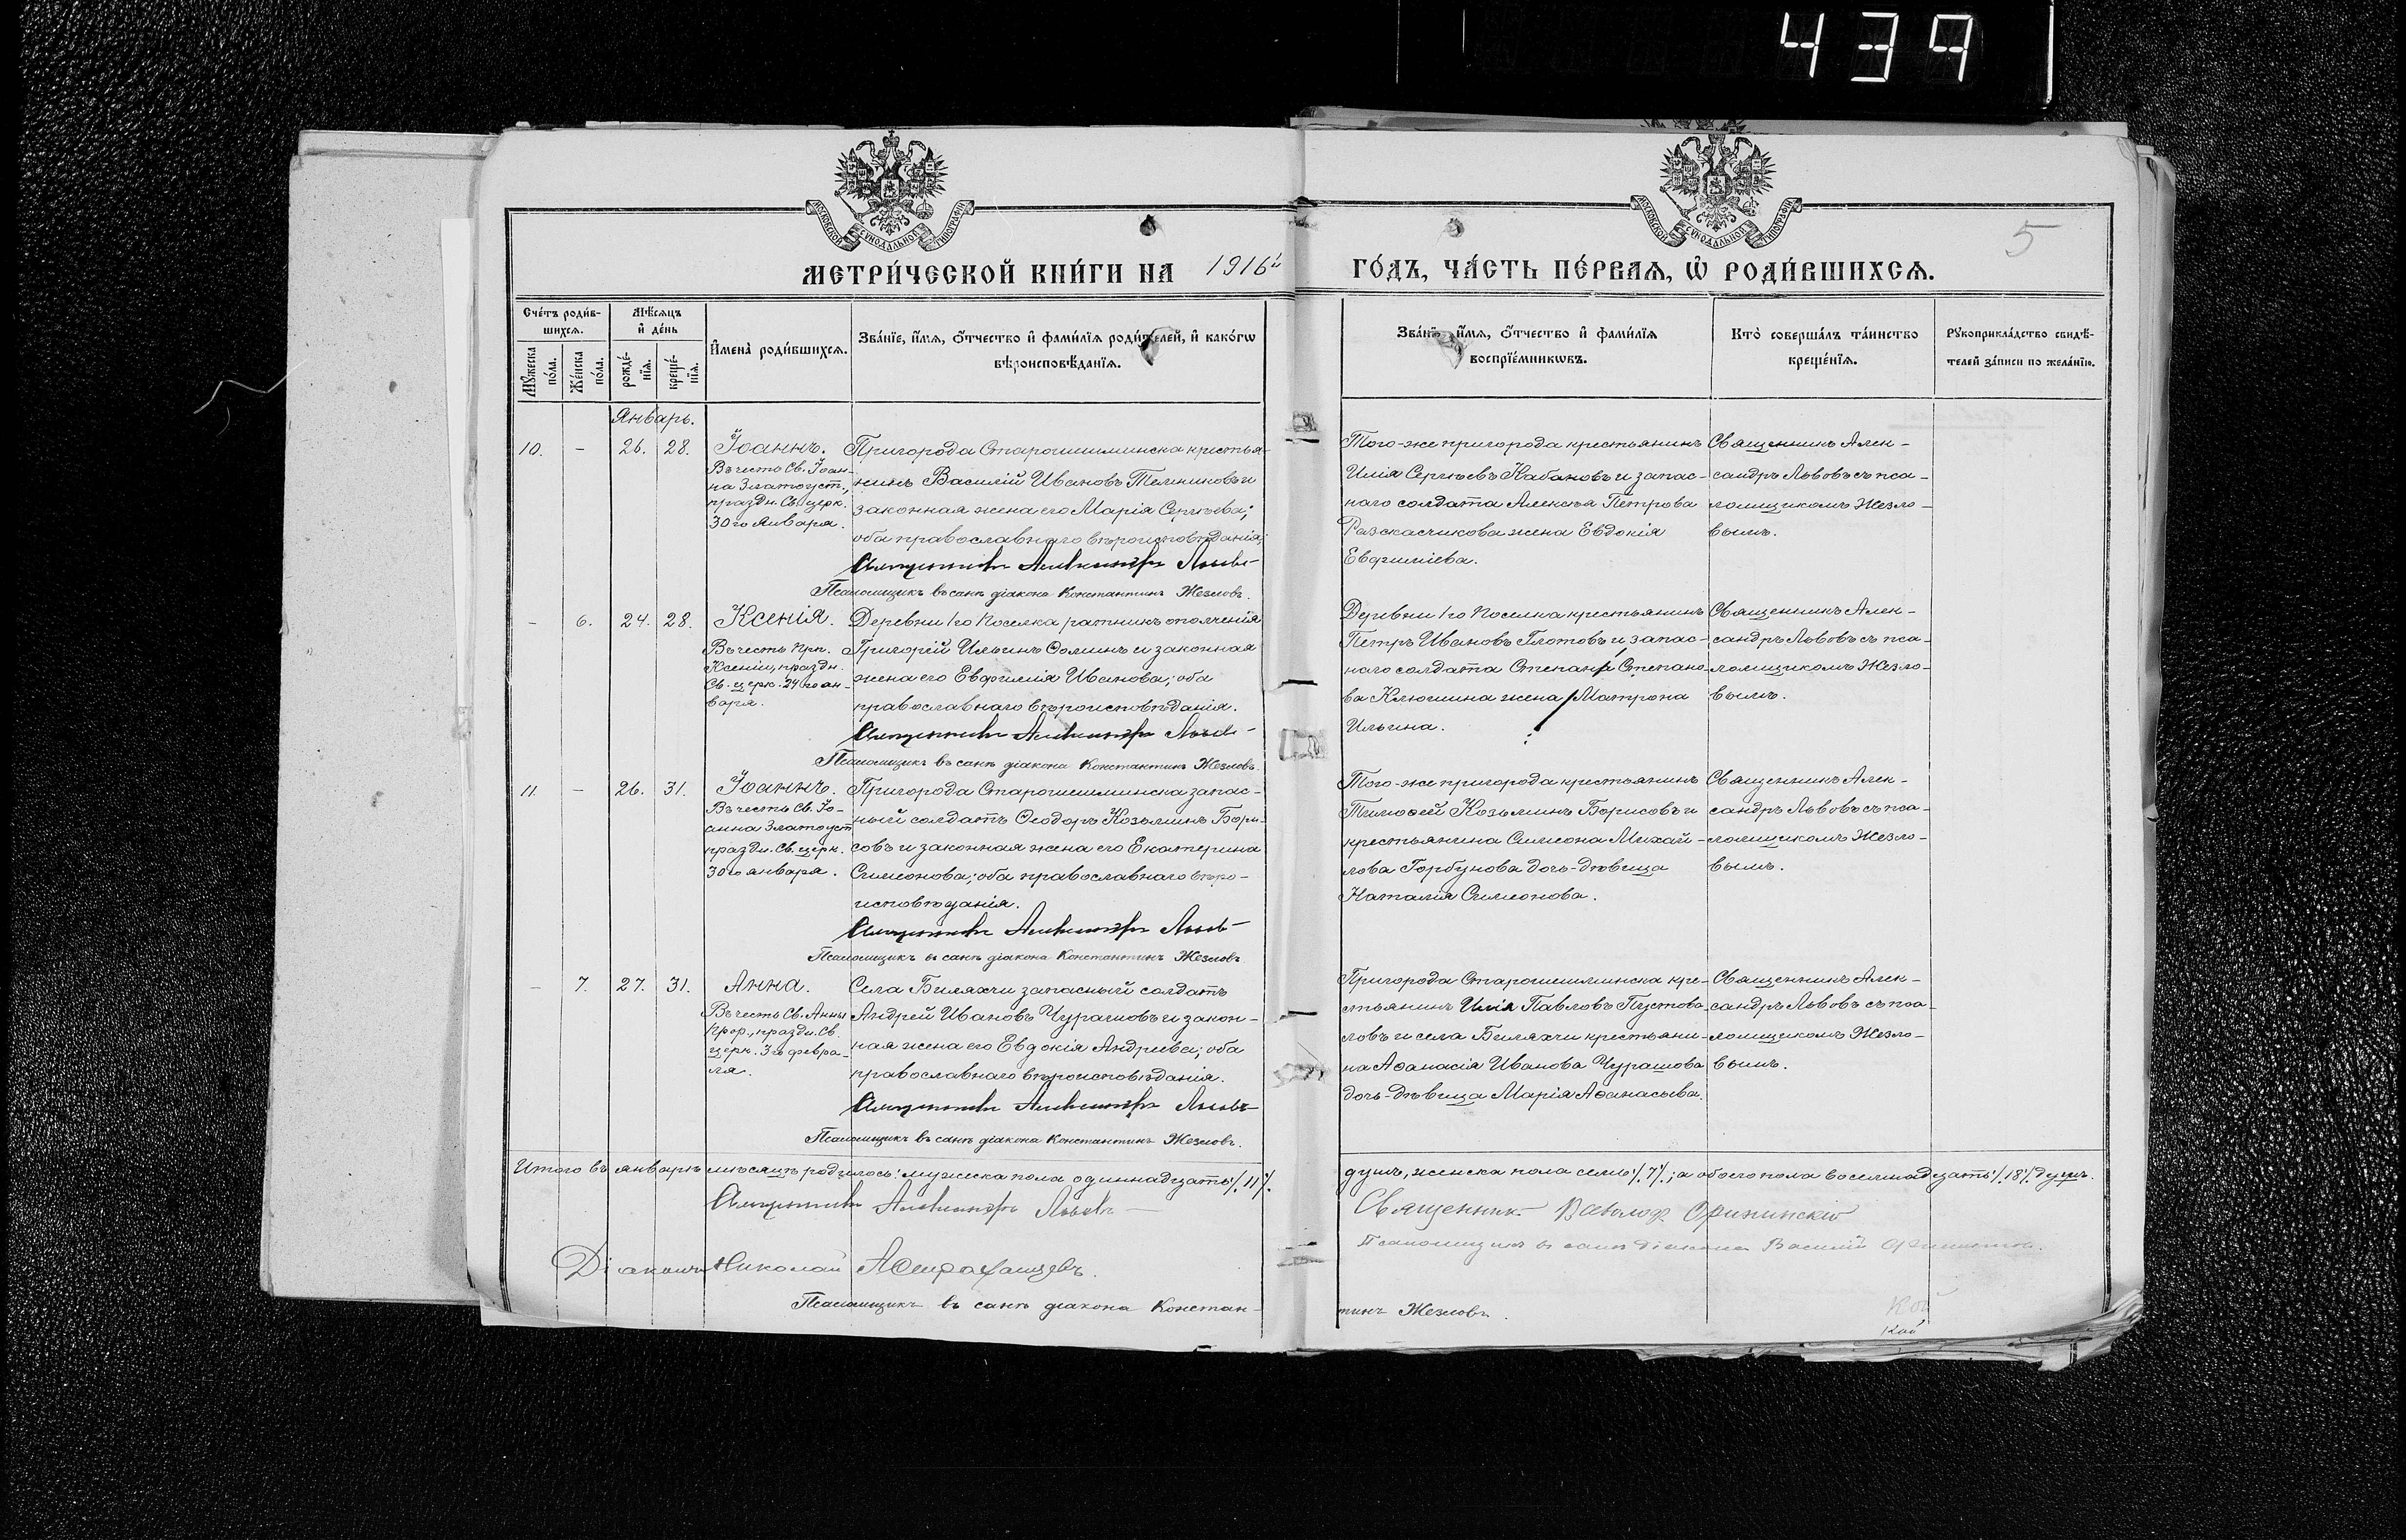 439
МОСКОВСКОЙ СѴНОДАЛЬНОЙ ТИПОГРАФІИ
МОСКОВСКОЙ СѴНОДАЛЬНОЙ ТИПОГРАФІИ
5
МЕТРИ́ЧЕСКОЙ КНИ́ГИ НА 1916й
ГО́ДЪ, ЧА́СТЬ ПЕ́РВАѦ, Ѡ҆ РОДИ́ВШИХСѦ.
Сче́тъ роди́в-
шихсѧ.
Мꙋ́жеска по́ла.
Же́нска по́ла.
Мѣ́сѧцъ
и҆ де́нь
рожде́-
нїѧ.
креще́-
нїѧ.
И҆мена̀ роди́вшихсѧ.
Зва́нїе, и҆́мѧ, ѻ҆́тчество и҆ фами́лїѧ роди́телей, и҆ како́гѡ
вѣроисповѣ́данїѧ.
Зва́нїе, и҆́мѧ, ѻ҆́тчество и҆ фами́лїѧ
воспрїе́мникѡвъ.
Кто̀ соверша́лъ та́инство
креще́нїѧ.
Рꙋкоприкла́дство свидѣ́-
телей за́писи по жела́нїю.
Январь.
10. - 26. 28. Іоаннъ.
Въ честь Св. Іоан-
на Златоуст.,
праздн. Св. церк.
30го января.
Пригорода Старошешминска крестья-
нинъ Василій Ивановъ Тельниковъ и
законная жена его Марія Сергѣева;
оба православнаго вѣроисповѣданія.
Священникъ Александръ Львовъ
Псаломщикъ въ санѣ діакона Константинъ Жезловъ.
Того-же пригорода крестьянинъ
Илія Сергѣевъ Кабановъ и запас-
наго солдата Алексѣя Петрова
Разскасчикова жена Евдокія
Евфиміева.
Священникъ Алек-
сандръ Львовъ съ пса-
ломщикомъ Жезло-
вымъ.
- 6. 24. 28. Ксенія.
Въ честь прп.
Ксеніи, праздн.
Св. церк. 24го ян-
варя.
Деревни 1го Поселка ратникъ ополченія
Григорій Ильинъ Ѳоминъ и законная
жена его Евфимія Иванова; оба
православнаго вѣроисповѣданія.
Священникъ Александръ Львовъ
Псаломщикъ въ санѣ діакона Константинъ Жезловъ.
Деревни 1го Поселка крестьянинъ
Петръ Ивановъ Глотовъ и запас-
наго солдата Степана Степано-
ва Клюшина жена Матрона
Ильина.
Священникъ Алек-
сандръ Львовъ съ пса-
ломщикомъ Жезло-
вымъ.
11. - 26. 31. Іоаннъ.
Въ честь Св. Іо-
анна Златоуст.
праздн. Св. церк.
30го января.
Пригорода Старошешминска запас-
ный солдатъ Ѳеодоръ Козьминъ Бори-
совъ и законная жена его Екатерина
Симеонова; оба православнаго вѣро-
исповѣданія.
Священникъ Александръ Львовъ
Псаломщикъ въ санѣ діакона Константинъ Жезловъ
Того-же пригорода крестьянинъ
Тимоѳей Козьминъ Борисовъ и
крестьянина Симеона Михай-
лова Горбунова дочь-дѣвица
Наталія Симеонова.
Священникъ Алек-
сандръ Львовъ съ пса-
ломщикомъ Жезло-
вымъ.
- 7. 27. 31. Анна.
Въ честь Св. Анны
прор., праздн. Св.
церк. 3го февра-
ля.
Села Биляхчи запасный солдатъ
Андрей Ивановъ Чурашовъ и закон-
ная жена его Евдокія Андреева; оба
православнаго вѣроисповѣданія.
Священникъ Александръ Львовъ
Псаломщикъ въ санѣ діакона Константинъ Жезловъ.
Пригорода Старошешминска кре-
стьянинъ Илія Павловъ Пустова-
ловъ и села Биляхчи крестьяни-
на Аѳанасія Иванова Чурашова
дочь-дѣвица Марія Аѳанасьева.
Священникъ Алек-
сандръ Львовъ съ пса-
ломщикомъ Жезло-
вымъ.
Итого въ январѣ мѣсяцѣ родилось: мужска пола одиннадцать /.11./
душъ, женска пола семь /.7./; а обоего пола восемнадцать /.18./ душъ.
Священникъ Александръ Львовъ
Священникъ
Псаломщикъ въ санѣ діакона Василій
Діаконъ Николай
Псаломщикъ въ санѣ діакона Констан-
тинъ Жезловъ.